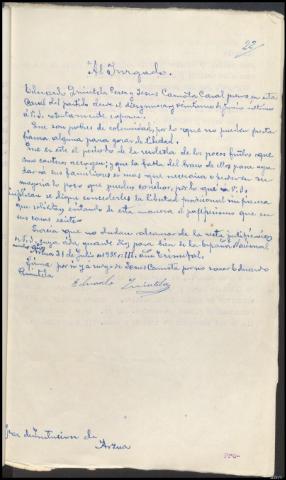 22
Al Juzgado.
Eduardo Quintela Perez y Jesus Camota Casal presos en esta
Carcel del partido desde el diez y nueve y veintiuno de Junio ultimo
a V.S. atentamente expone:
Que son pobres de solemnidad, por lo que no pueden prestar
fianza alguna para gozar de libertad.
Que es este el periodo de la de los pocos frutos que
sus caseros recogen; y que la falta del brazo de ellos para ayu-
dar a sus familiares es mas que necesaria
lo poco que pueden cosechar, por lo que a V.S.,
suplican se digne concederles la libertad provisional sin fianza
que solicitan, evitando de esta manera el que en
sus casas existe
Gracia que no dudan alcanzar de la recta justificación
de V.S. cuya vida guarde Dios para bien de la España Nacional
Arzua 21 de julio de 1938. III. año Triunfal.
Firma por si y a ruego de Jesus Camota por no saber Eduardo
Quintela
Eduardo Quintela
Juez de Instrucion de
Arzua